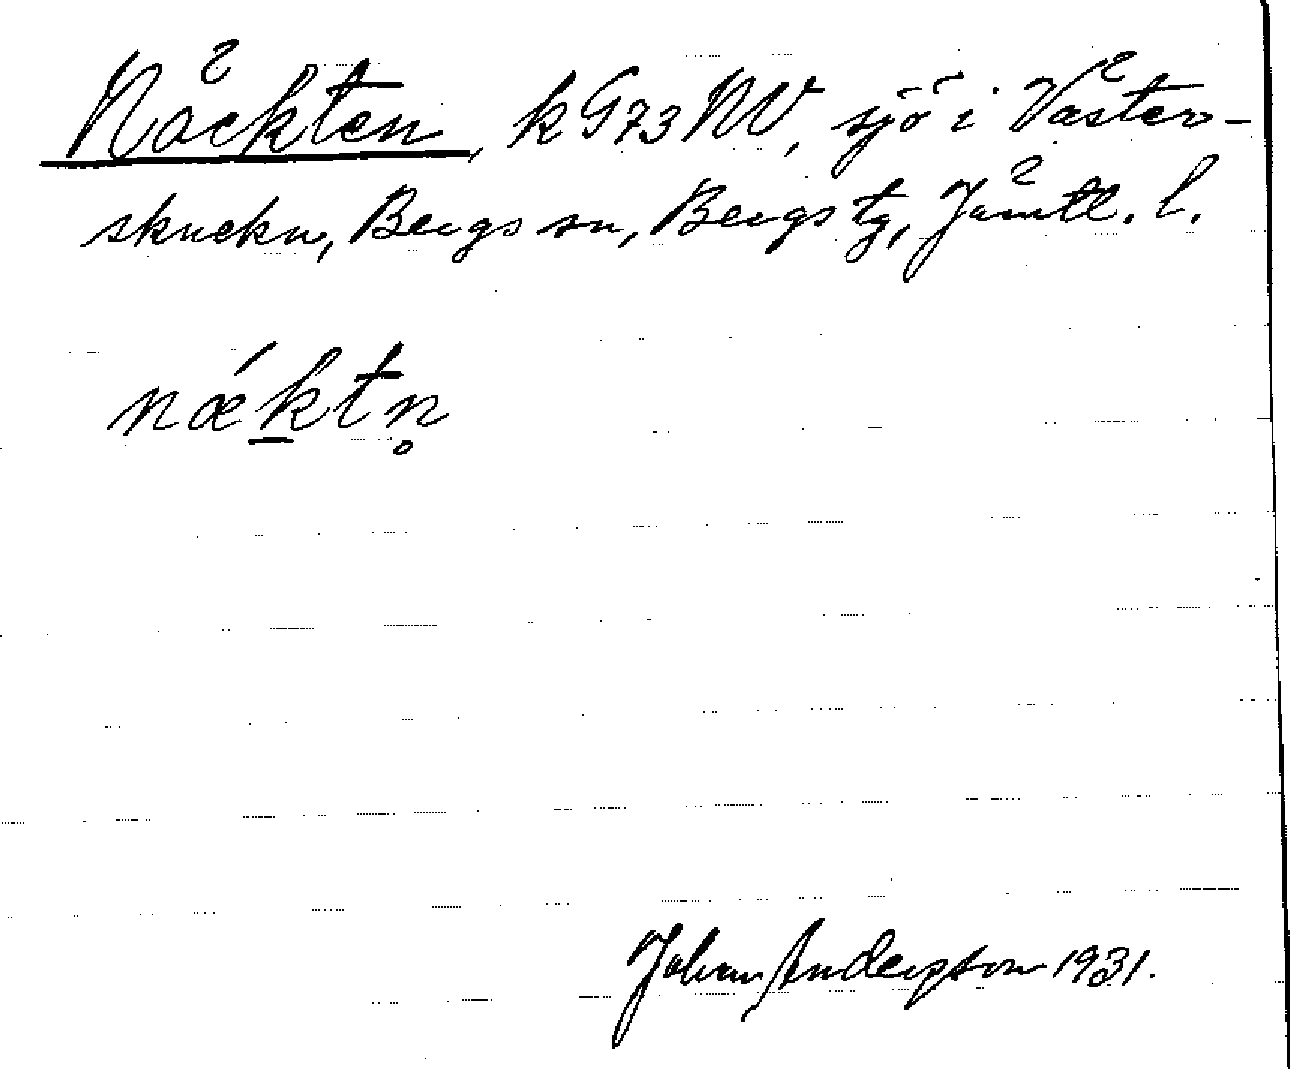 Näckten, k G73 NV, sjö i Väster-
skucku, Bergs sn, Bergs tg, Jämtl. l.
nǽk̲tn̥
Johan Anderson 1931.